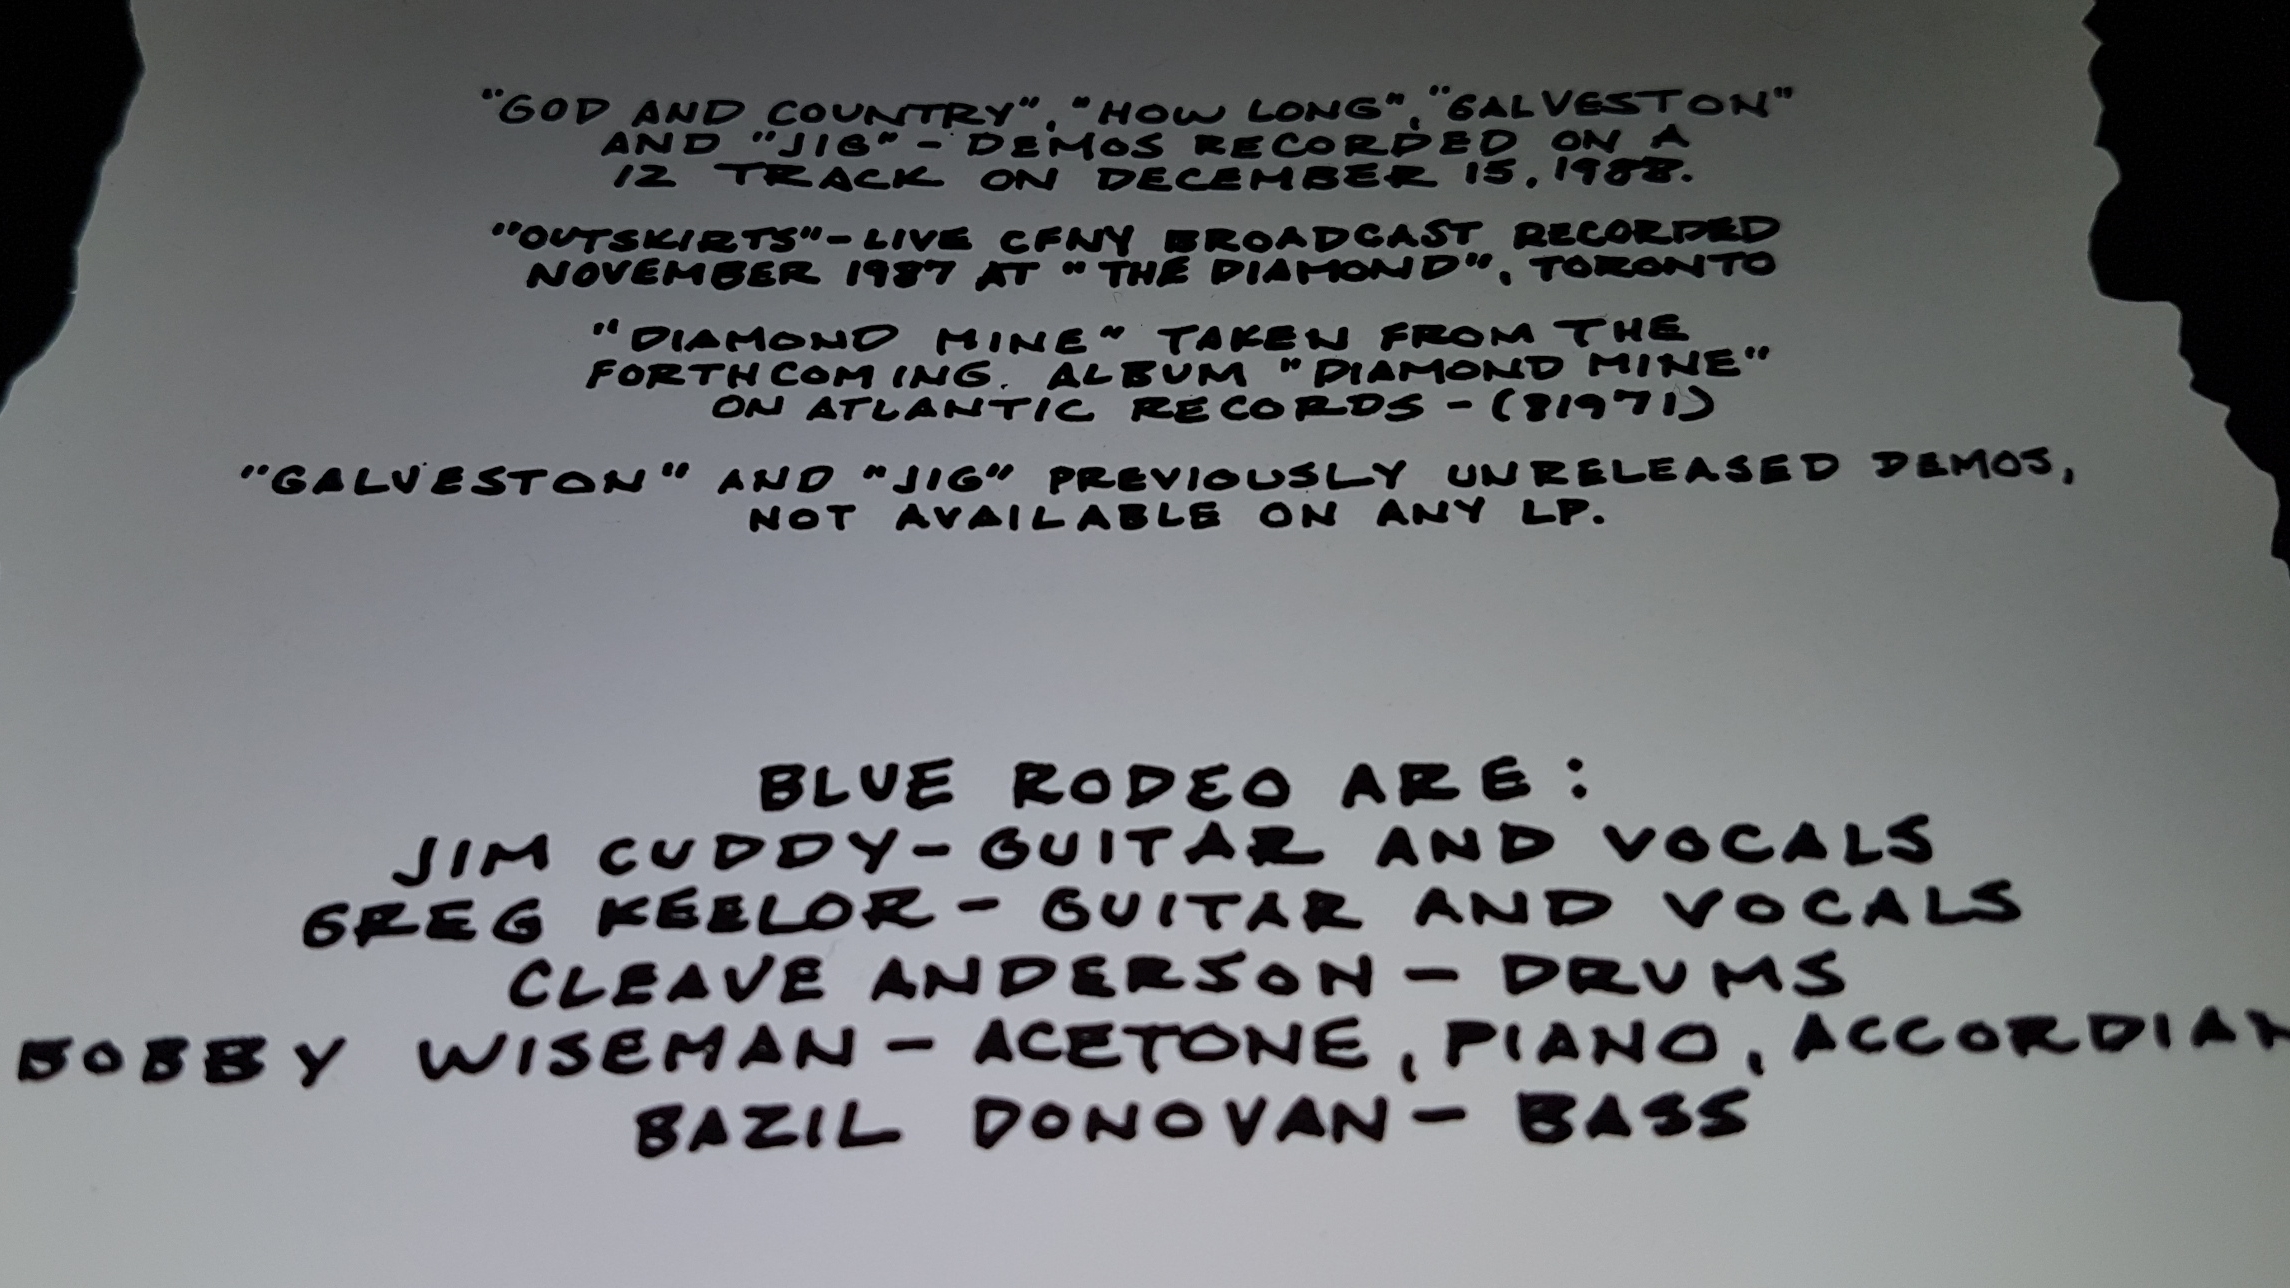 "GOD AND COUNTRY", "HOW LONG", "GALVESTON"
AND "JIG" - DEMOS RECORDED ON A
12 TRACK ON DECEMBER 15, 1988.
"OUTSKIRTS" - LIVE CFNY BROADCAST RECORDED
NOVEMBER 1987 AT "THE DIAMOND", TORONTO
"DIAMOND MINE" TAKEN FROM THE
FORTHCOMING. ALBUM "DIAMOND MINE"
ON ATLANTIC RECORDS - (81971)
"GALVESTON" AND "JIG" PREVIOUSLY UNRELEASED DEMOS,
NOT AVAILABLE ON ANY LP.
BLUE RODEO ARE:
JIM CUDDY - GUITAR AND VOCALS
GREG KEELOR - GUITAR AND VOCALS
CLEAVE ANDERSON - DRUMS
BOBBY WISEMAN - ACETONE, PIANO, ACCORDIAN
BAZIL DONOVAN - BASS